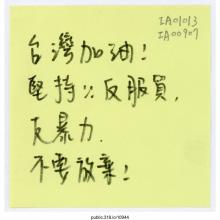 IA01013
IA00907
台灣加油!
堅持反服貿,
反暴力.
不要放棄!
public.318.io/10944